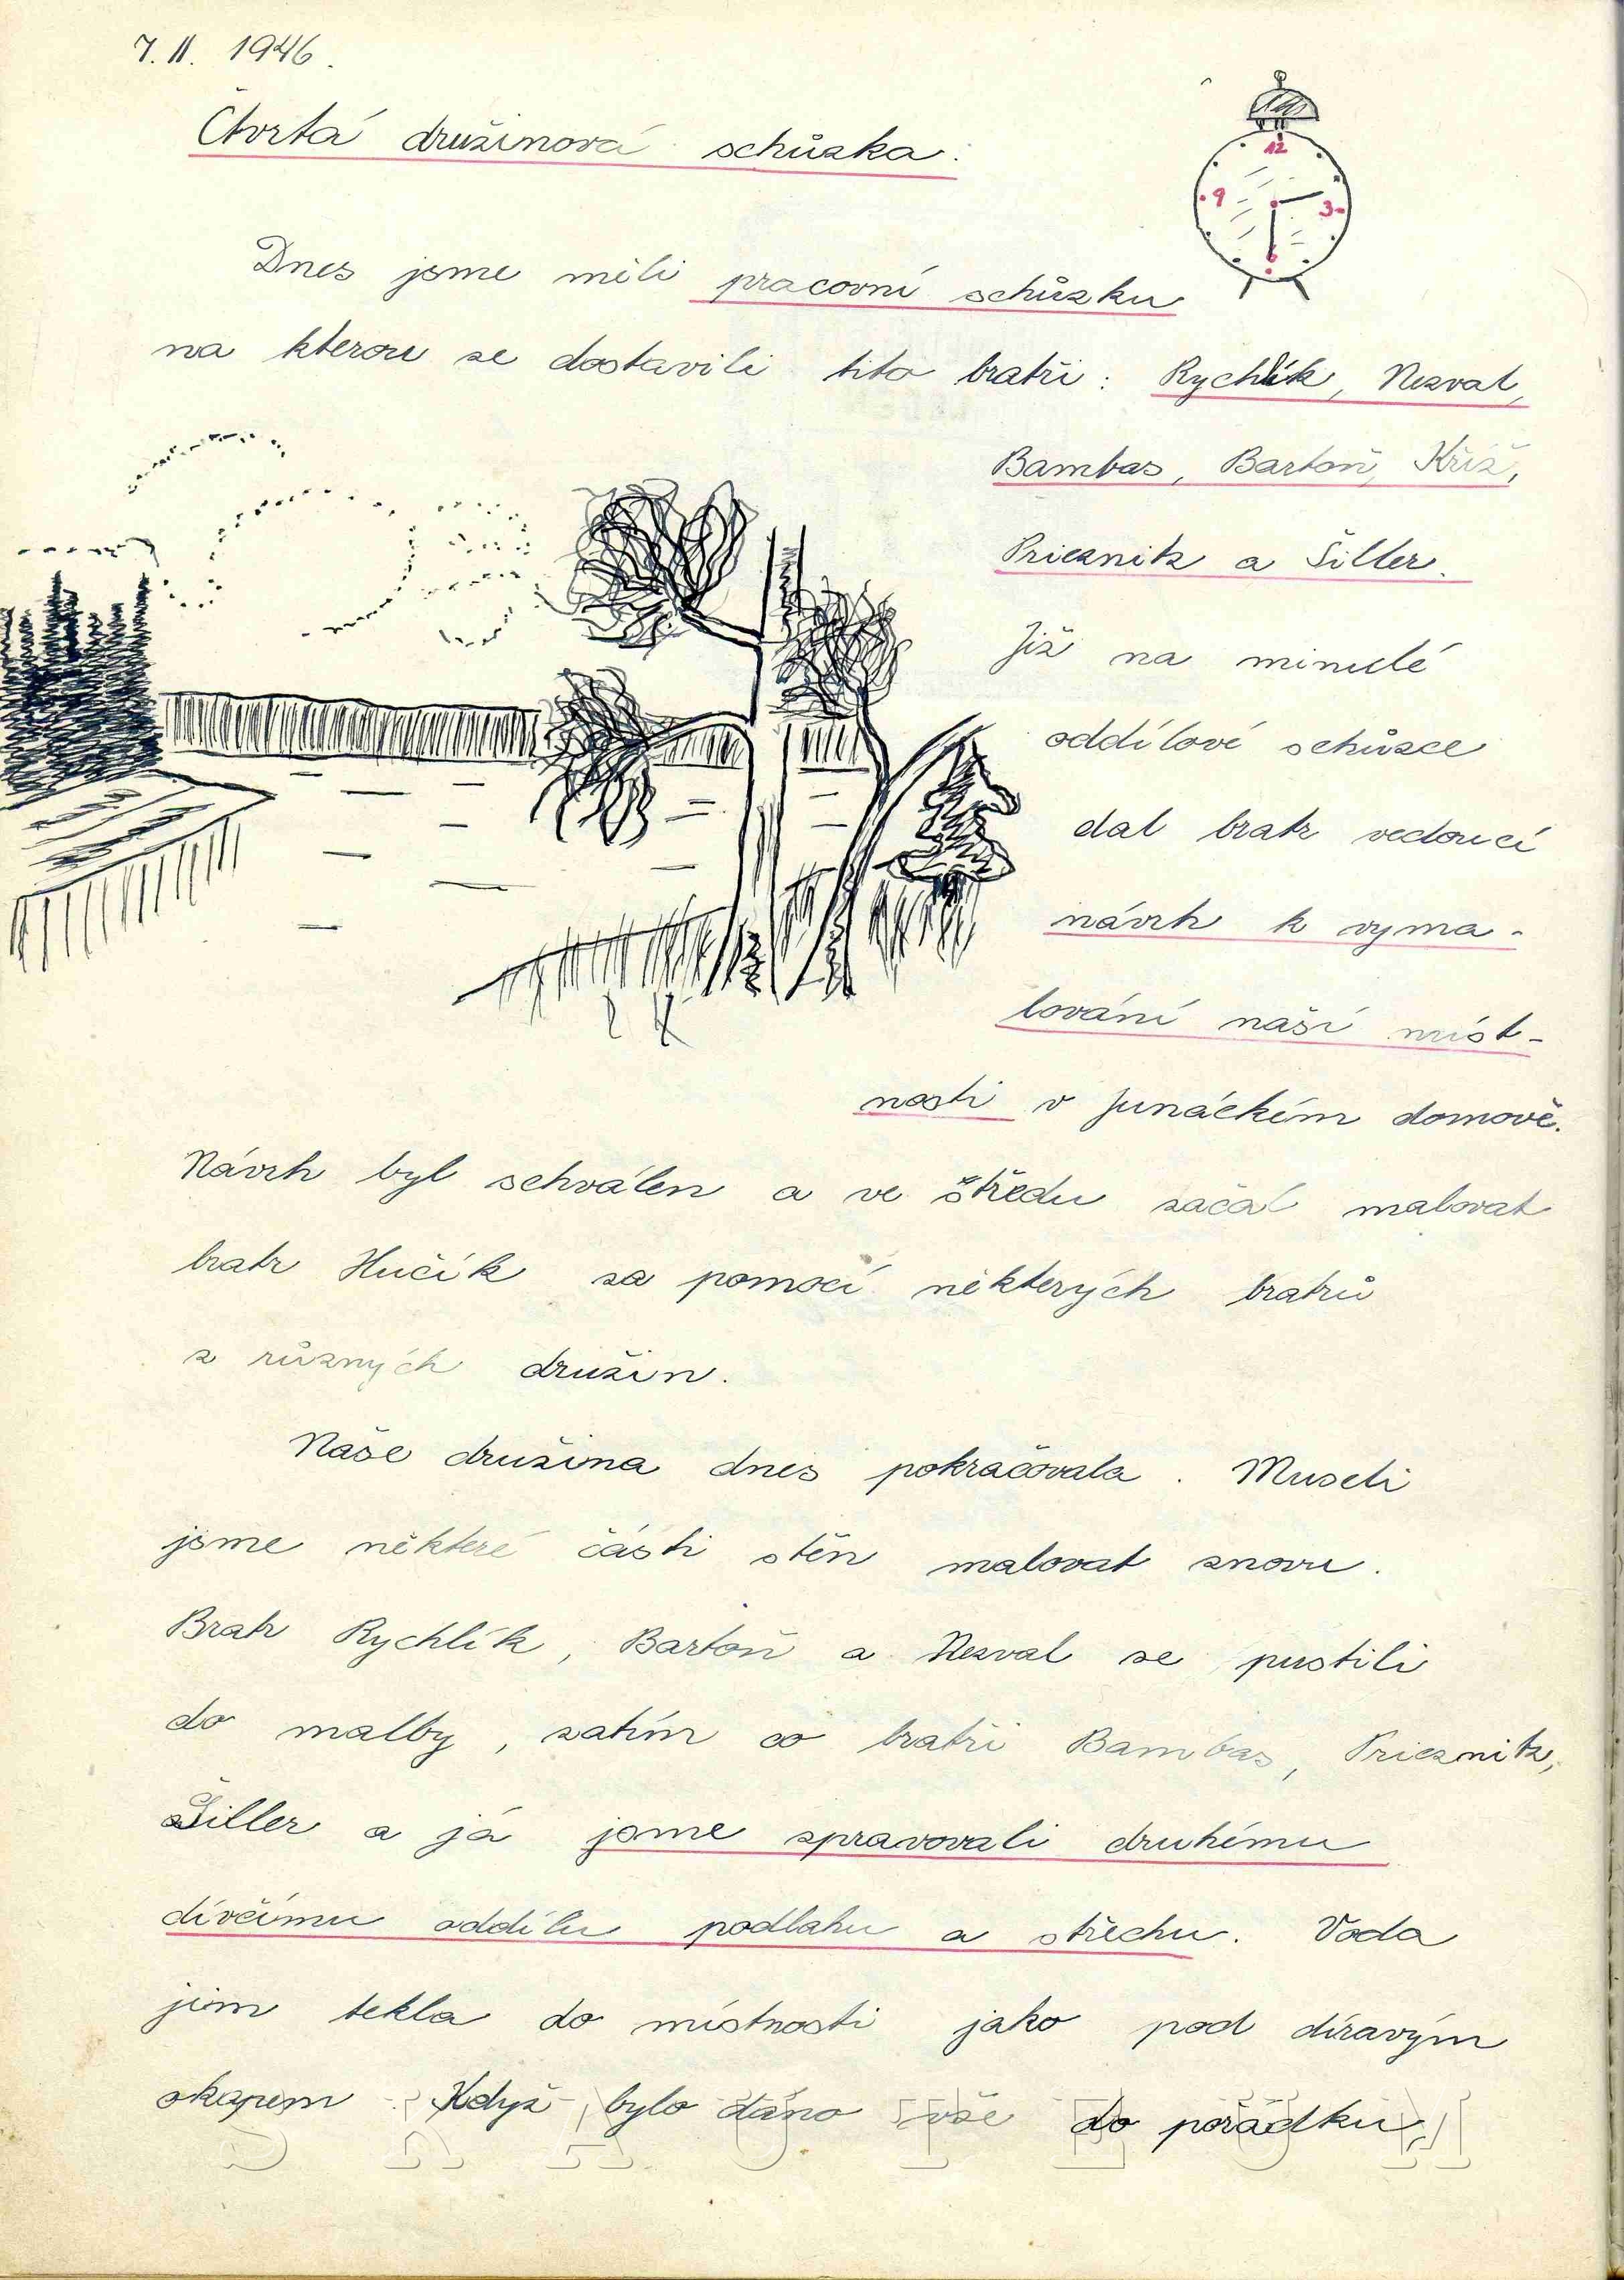 7. II. 1946.
Čtvrtá družinová schůzka.
12
9
3
6
Dnes jsme měli pracovní schůzku
na kterou se dostavili tito bratři: Rychlík, Nezval,
Bambas, Bartoň, Kříž,
Priesnitz a Šiller.
Již na minulé
oddílové schůzce
dal bratr vedoucí
návrh k vyma-
lování naší míst-
nosti v Junáckém domově.
Návrh byl schválen a ve středu začal malovat
bratr Hučík za pomoci některých bratrů
z různých družin.
Naše družina dnes pokračovala. Museli
jsme některé části stěn malovat znovu.
Bratr Rychlík, Bartoň a Nezval se pustili
do malby, zatím co bratři Bambas, Priesnitz,
Šiller a já jsme spravovali druhému
dívčímu oddílu podlahu a střechu. Voda
jim tekla do místnosti jako pod děravým
okapem. Když bylo dáno vše do pořádku,